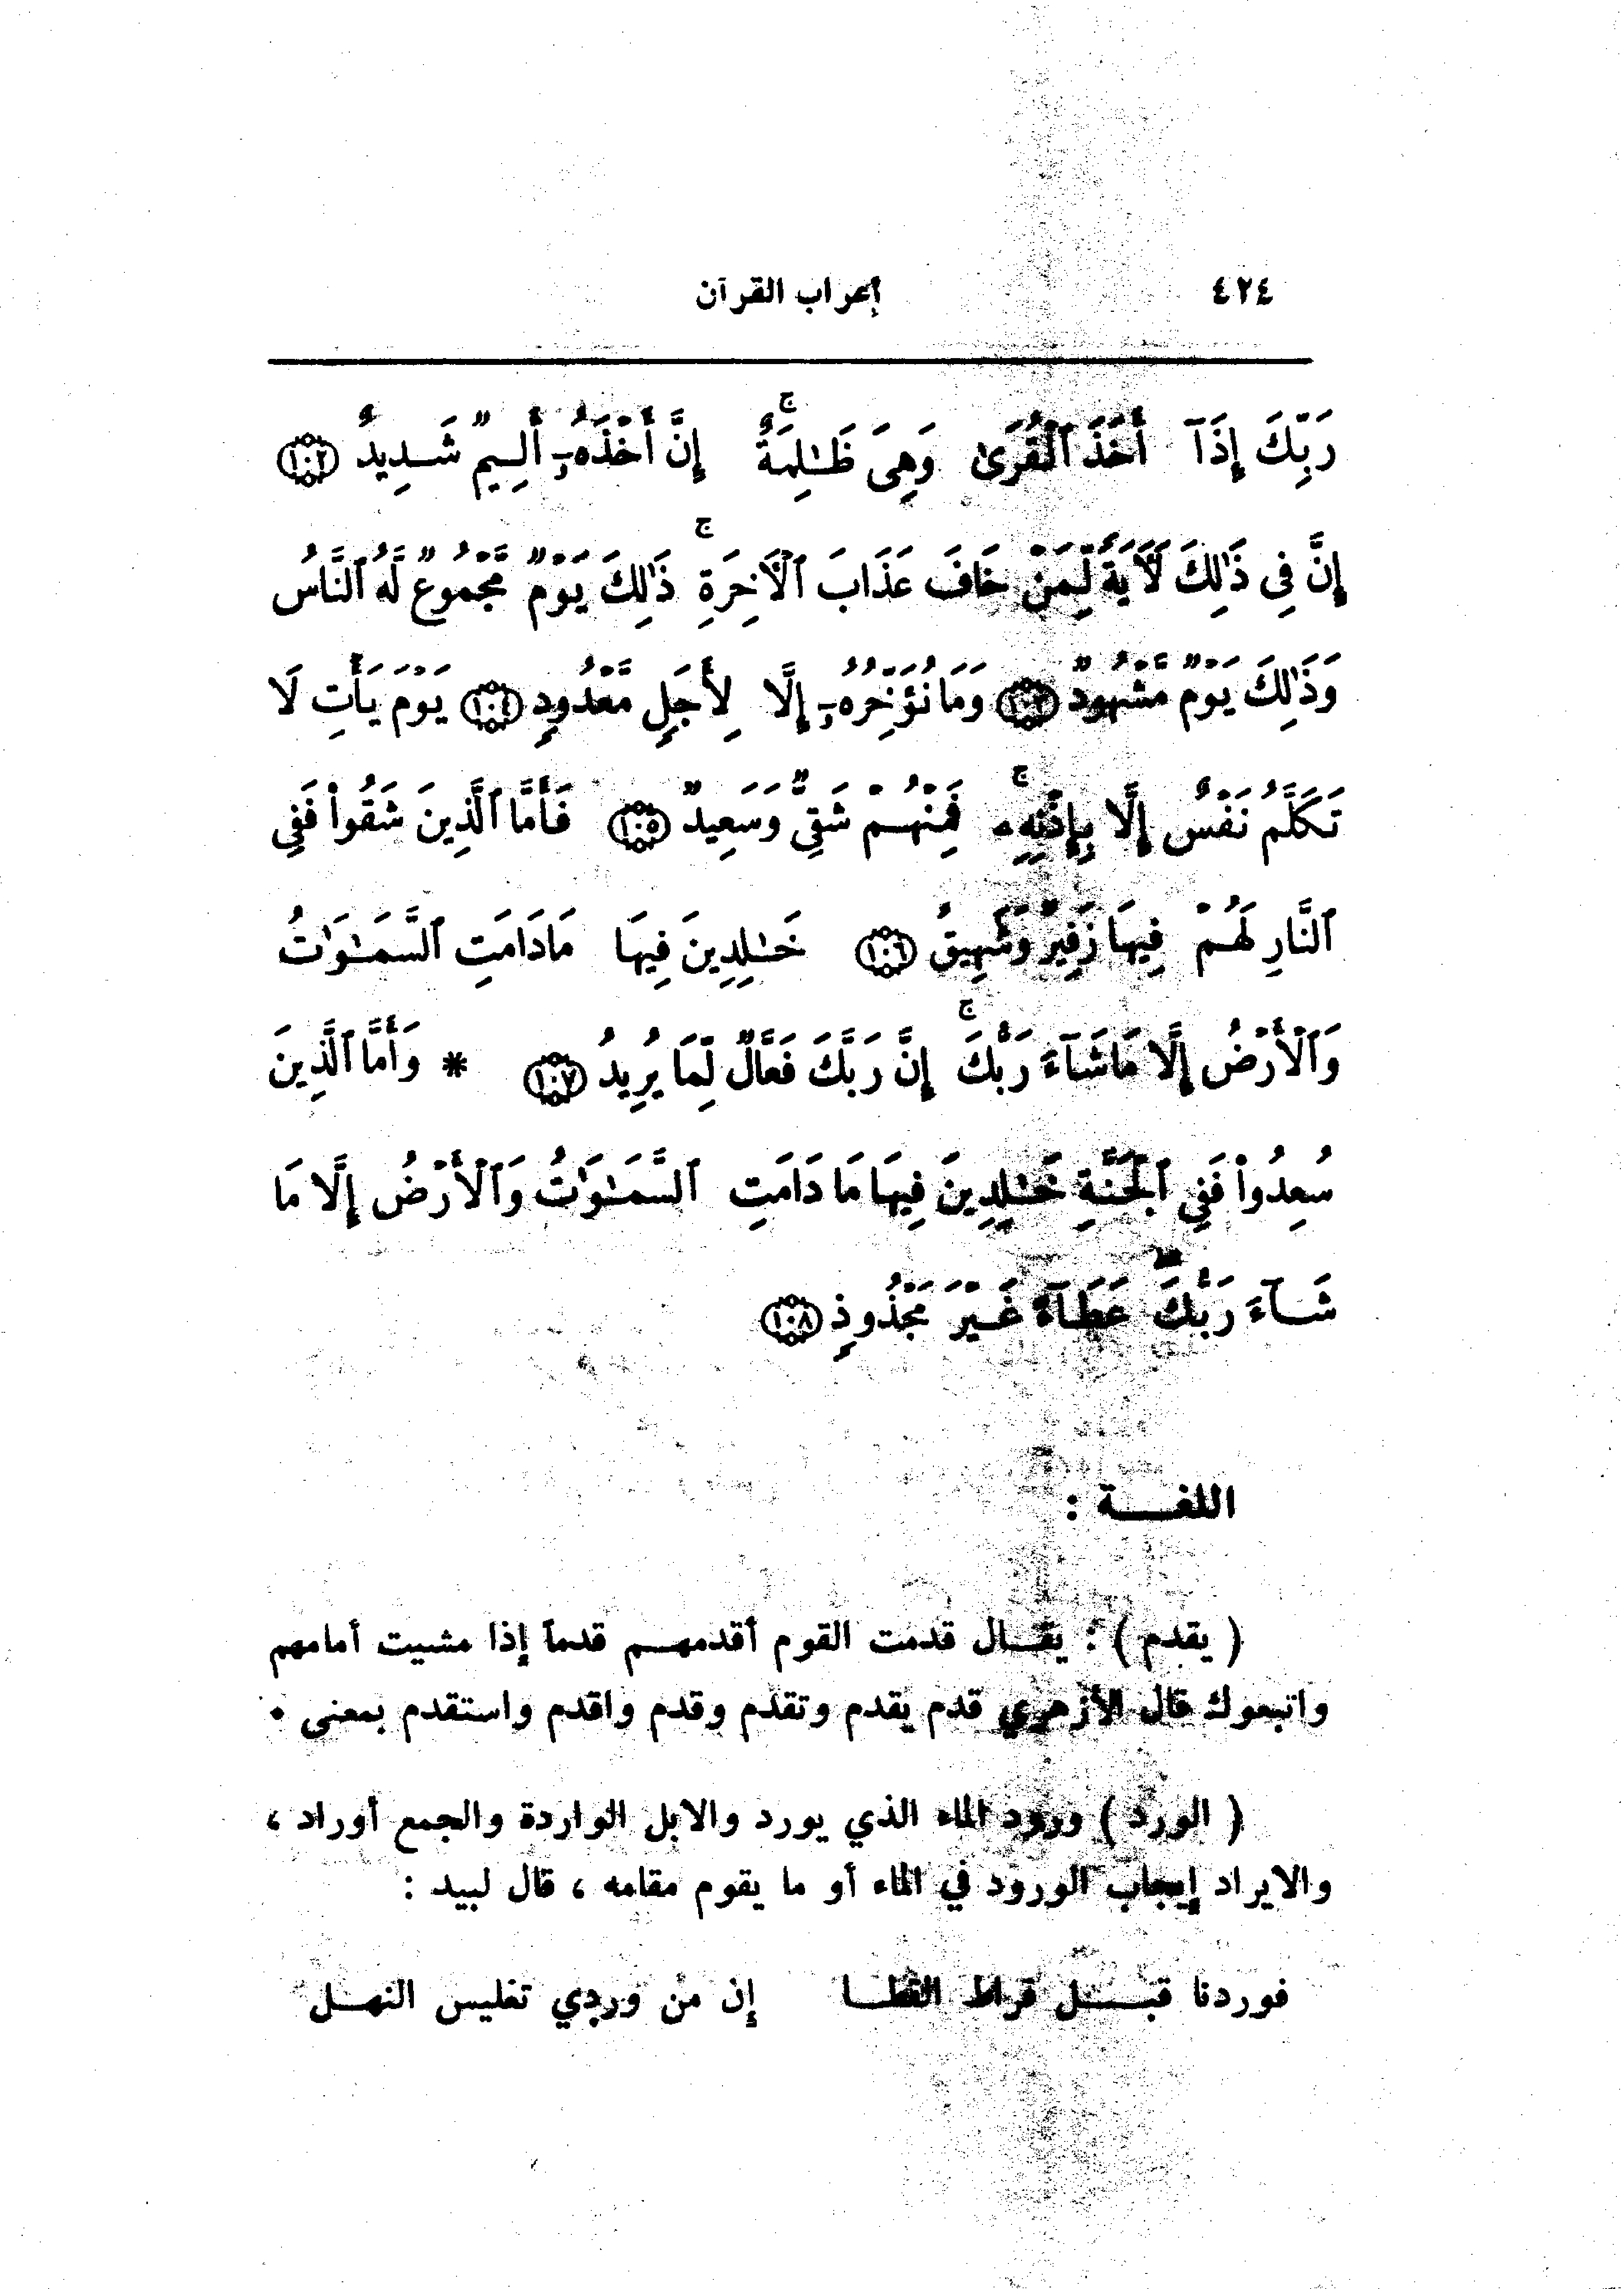 ٤٢٤
إعراب القرآن
رَبِّكَ إِذَآ أَخَذَ ٱلْقُرَىٰ وَهِىَ ظَـٰلِمَةٌ ۚ إِنَّ أَخْذَهُۥٓ أَلِيمٌ شَدِيدٌ ١٠٢
إِنَّ فِى ذَٰلِكَ لَـَٔايَةً لِّمَنْ خَافَ عَذَابَ ٱلْـَٔاخِرَةِ ۚ ذَٰلِكَ يَوْمٌ مَّجْمُوعٌ لَّهُ ٱلنَّاسُ
وَذَٰلِكَ يَوْمٌ مَّشْهُودٌ ١٠٣ وَمَا نُؤَخِّرُهُۥٓ إِلَّا لِأَجَلٍ مَّعْدُودٍ ١٠٤ يَوْمَ يَأْتِ لَا
تَكَلَّمُ نَفْسٌ إِلَّا بِإِذْنِهِۦ ۚ فَمِنْهُمْ شَقِىٌّ وَسَعِيدٌ ١٠٥ فَأَمَّا ٱلَّذِينَ شَقُوا۟ فَفِى
ٱلنَّارِ لَهُمْ فِيهَا زَفِيرٌ وَشَهِيقٌ ١٠٦ خَـٰلِدِينَ فِيهَا مَا دَامَتِ ٱلسَّمَـٰوَٰتُ
وَٱلْأَرْضُ إِلَّا مَا شَآءَ رَبُّكَ ۚ إِنَّ رَبَّكَ فَعَّالٌ لِّمَا يُرِيدُ ١٠٧ * وَأَمَّا ٱلَّذِينَ
سُعِدُوا۟ فَفِى ٱلْجَنَّةِ خَـٰلِدِينَ فِيهَا مَا دَامَتِ ٱلسَّمَـٰوَٰتُ وَٱلْأَرْضُ إِلَّا مَا
شَآءَ رَبُّكَ ۖ عَطَآءً غَيْرَ مَجْذُوذٍ ١٠٨
اللغـــة :
( يقدم ) : يقـال قدمت القوم أقدمهـم قدماً إذا مشيت أمامهم
واتبعوك قال الأزهري قدم يقدم وتقدم وقدم واقدم واستقدم بمعنى .
( الورد ) ورود الماء الذي يورد والابل الواردة والجمع أوراد ،
والايراد إيجاب الورود في الماء أو ما يقوم مقامه ، قال لبيد :
فوردنا قبـــل قراط القطـا إن من وردي تغليس النهـل